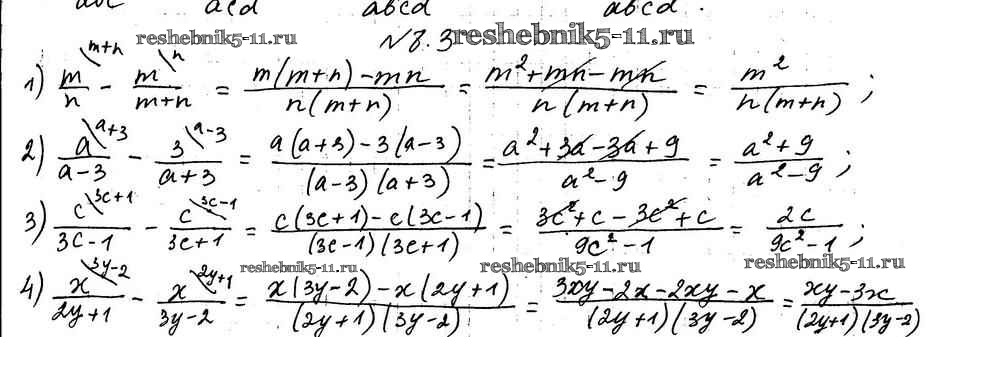 abc acd abcd abcd .
reshebnik5-11.ru №8.3 reshebnik5-11.ru
1) m/n \m+n - m/(m+n) \n = (m(m+n)-mn)/(n(m+n)) = (m²+mn-mn)/(n(m+n)) = m²/(n(m+n)) ;
2) a/(a-3) \a+3 - 3/(a+3) \a-3 = (a(a+3)-3(a-3))/((a-3)(a+3)) = (a²+3a-3a+9)/(a²-9) = (a²+9)/(a²-9) ;
3) c/(3c-1) \3c+1 - c/(3c+1) \3c-1 = (c(3c+1)-c(3c-1))/((3c-1)(3c+1)) = (3c²+c-3c²+c)/(9c²-1) = 2c/(9c²-1) ;
reshebnik5-11.ru reshebnik5-11.ru reshebnik5-11.ru
4) x/(2y+1) \3y-2 - x/(3y-2) \2y+1 = (x(3y-2)-x(2y+1))/((2y+1)(3y-2)) = (3xy-2x-2xy-x)/((2y+1)(3y-2)) = (xy-3x)/((2y+1)(3y-2))